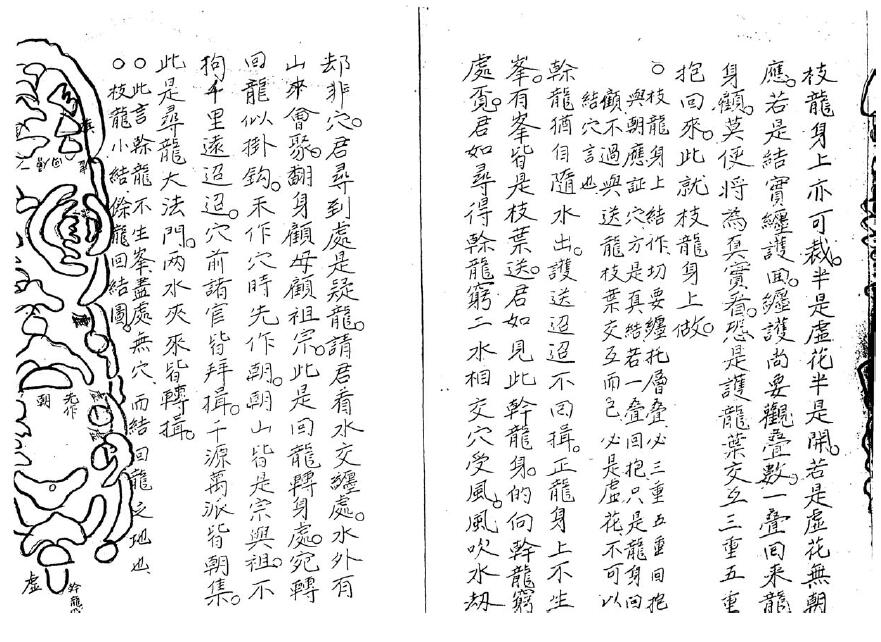 枝龍身上亦可裁。半是虛花半是開。若是虛花無朝
應。若是結實纏護回。纏護尚要觀疊數。一疊回來龍
身顧。莫便將為真實看。恐是護龍葉交互三重五重
抱回來。此就枝龍身上做。
○枝龍身上結作切要纏托層疊必三重五重回抱
與朝應証穴方是真結若一疊回抱只是龍身回
顧不過與送龍枝葉交互而已必是虛花不可以
結穴言也
幹龍猶自隨水出。護送迢迢不回揖。正龍身上不生
峯。有峯皆是枝葉送。君如見此幹龍身。的向幹龍窮
處覔。君如尋得幹龍窮二水相交穴受風。風吹水刼
却非穴。君尋到處是疑龍。請君看水交纏處。水外有
山來會聚。翻身顧母顧祖宗。此是回龍轉身處。宛轉
回龍似掛鈎。未作穴時先作朝。朝山皆是宗與祖。不
拘千里遠迢迢。穴前諸官皆拜揖。千源萬派皆朝集。
此是尋龍大法門。两水夾來皆轉揖。
○此言幹龍不生峯盡處無穴、而結回龍之地也、
○枝龍小結餘龍回結圖。
先作
朝
虛